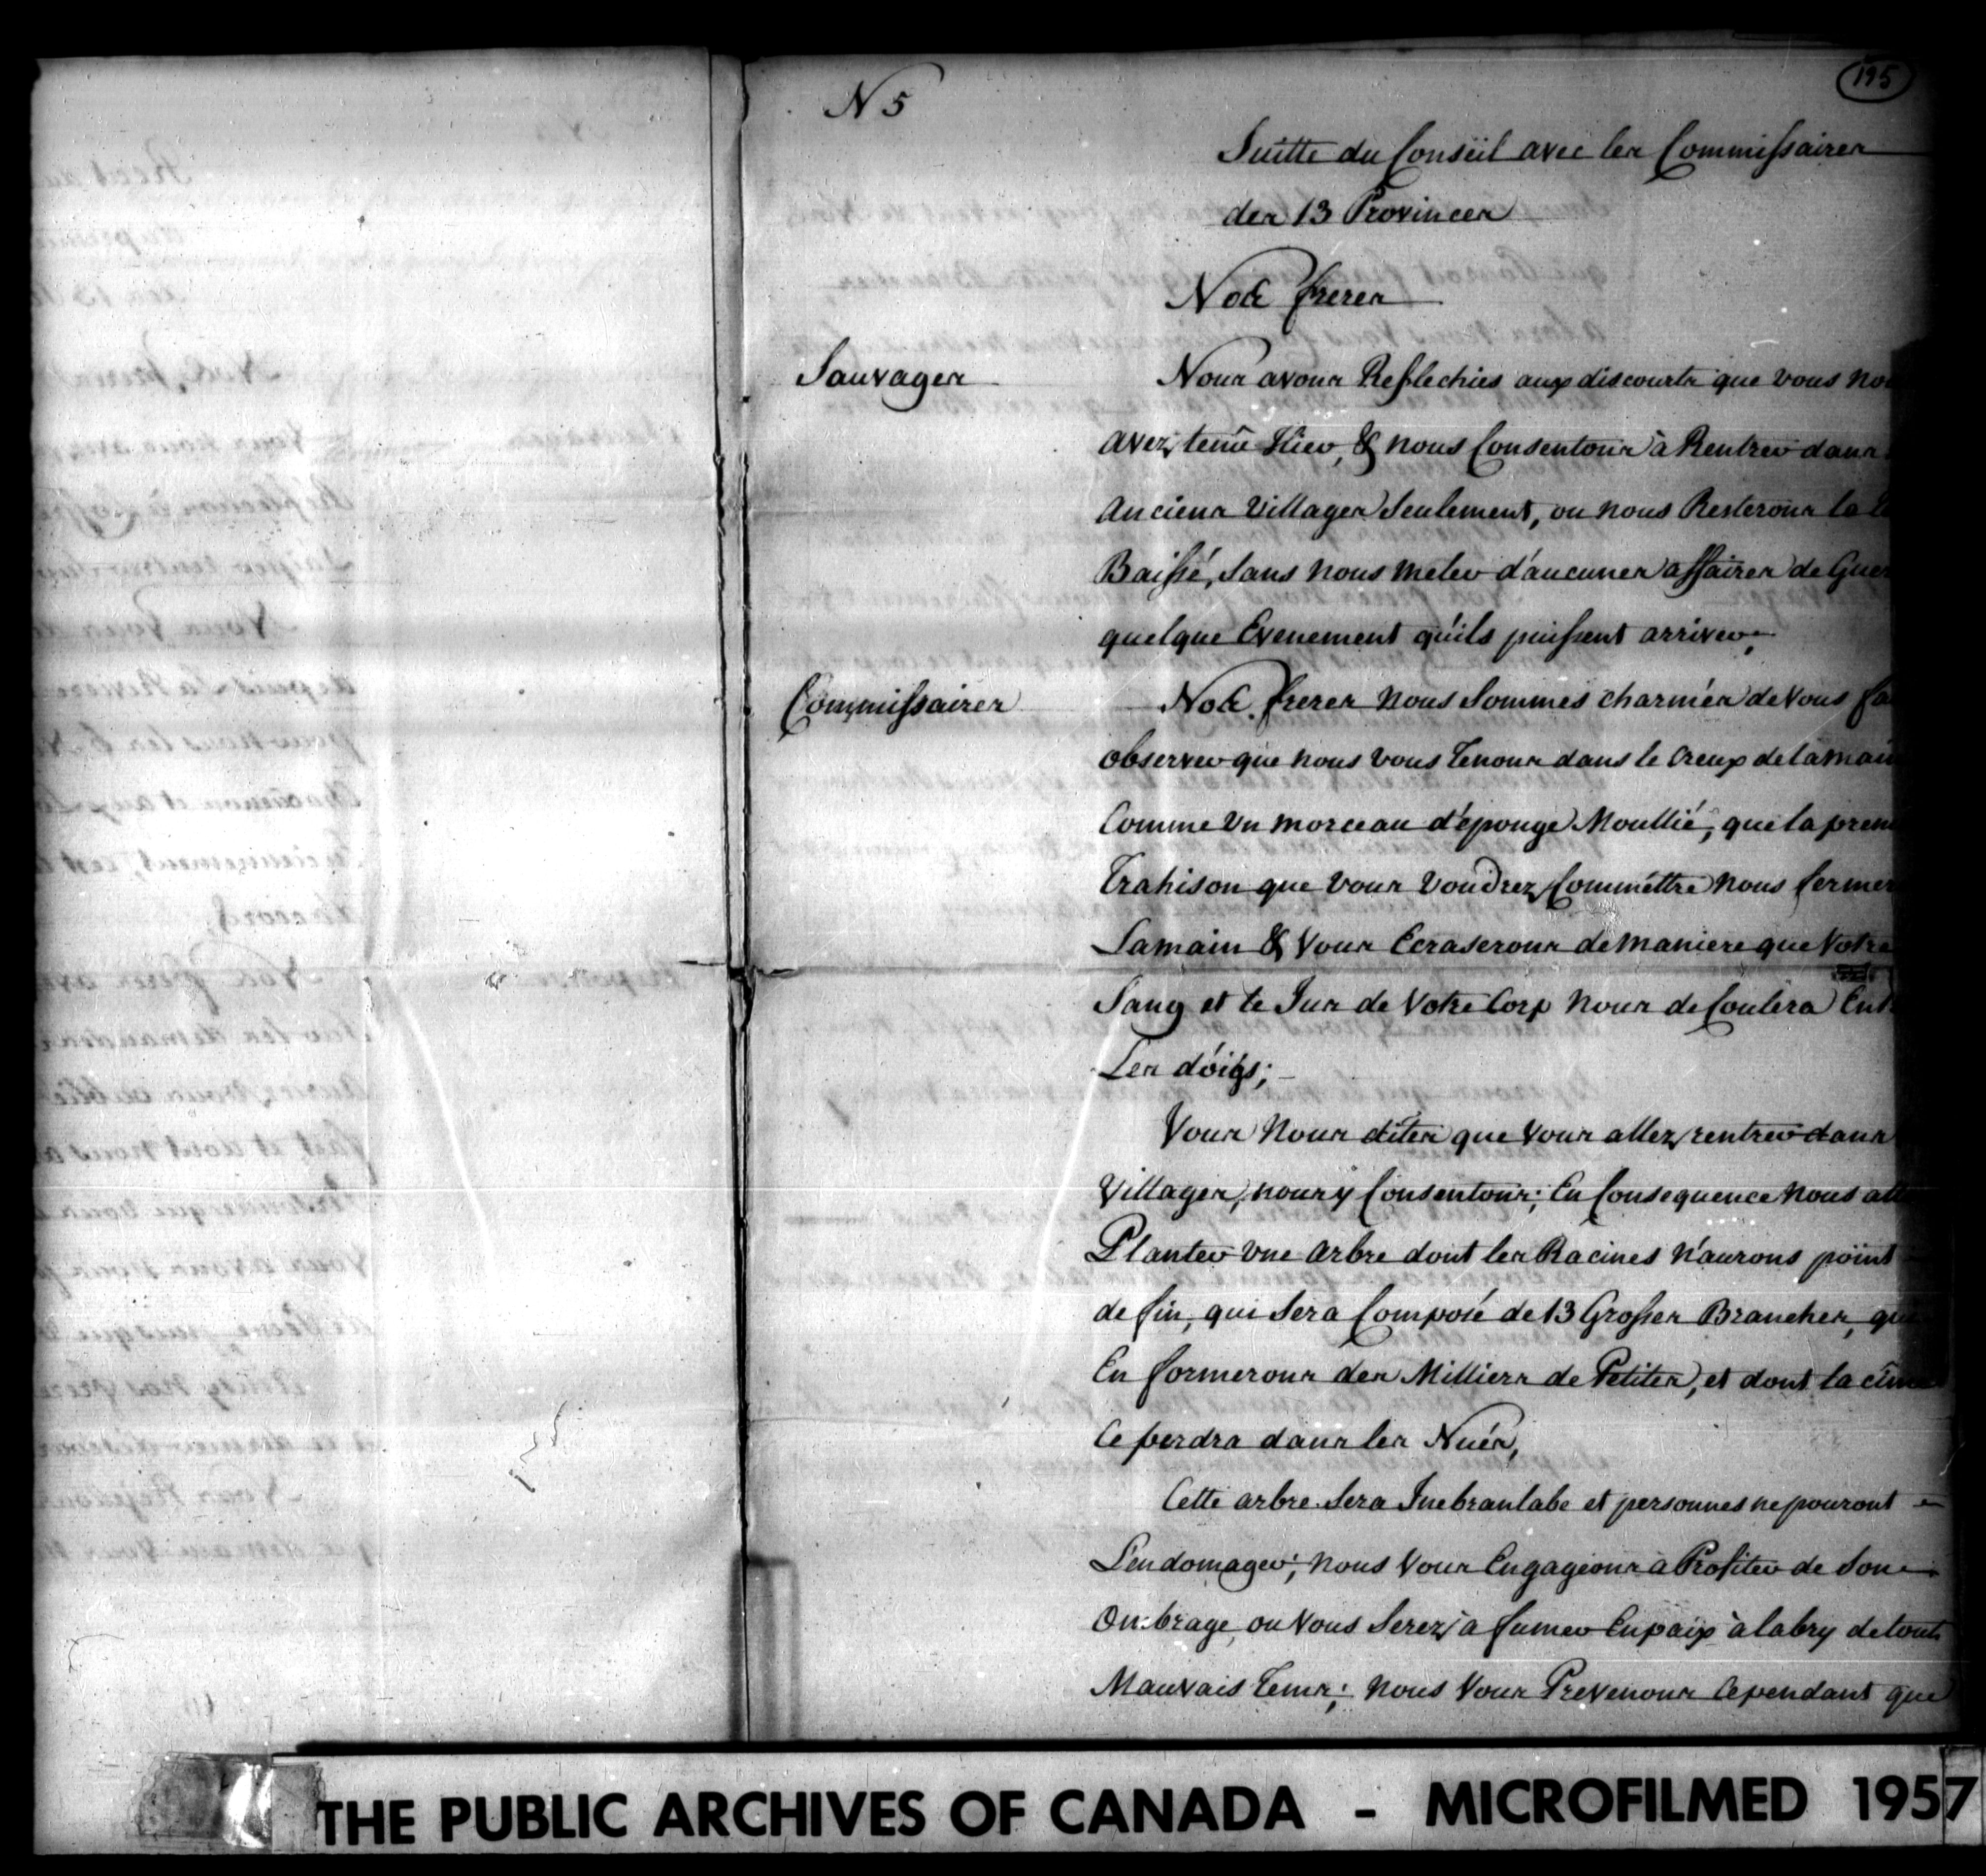 N 5
195
Suitte du Conseil avec les Commissaires
des 13 Provinces
Nos freres
Sauvages
Nous avons Reflechies aux discourts que vous
avez tenu Hier, & nous Consentons à Rentrer dans
anciens Villages Seulement, ou nous Resterons la
Baissé, Sans nous meler d'aucunes affaires de
quelque Evenement qu'ils puissent arriver,
Commissaires
Nos freres nous Sommes charmés de vous
observer que nous vous Tenons dans le Creux de la main
Comme un morceau d'éponge Moullié, que la
Trahison que vous voudrez Commettre nous
La main & vous Ecraserons de maniere que Votre
Sang et le Jus de Votre Corp nous decoulera
Les doigs;
Vous nous dites que vous allez rentrer dans
Villages, nous y Consentons; En Consequence nous
Planter une arbre dont les Racines n'aurons point
de fin, qui Sera Composé de 13 Grosses Branches,
En formerons des Milliers de Petites, et dont la cime
Ce perdra dans les Nués,
Cette arbre Sera Inebranlabe et personnes ne pouront
L'endomager; nous Vous Engageons à Profiter de Son
Ombrage, ou vous Serez a fumer En paix à labry de tout
Mauvais Tems; nous Vous Prevenons Cependant que
THE PUBLIC ARCHIVES OF CANADA - MICROFILMED 1957